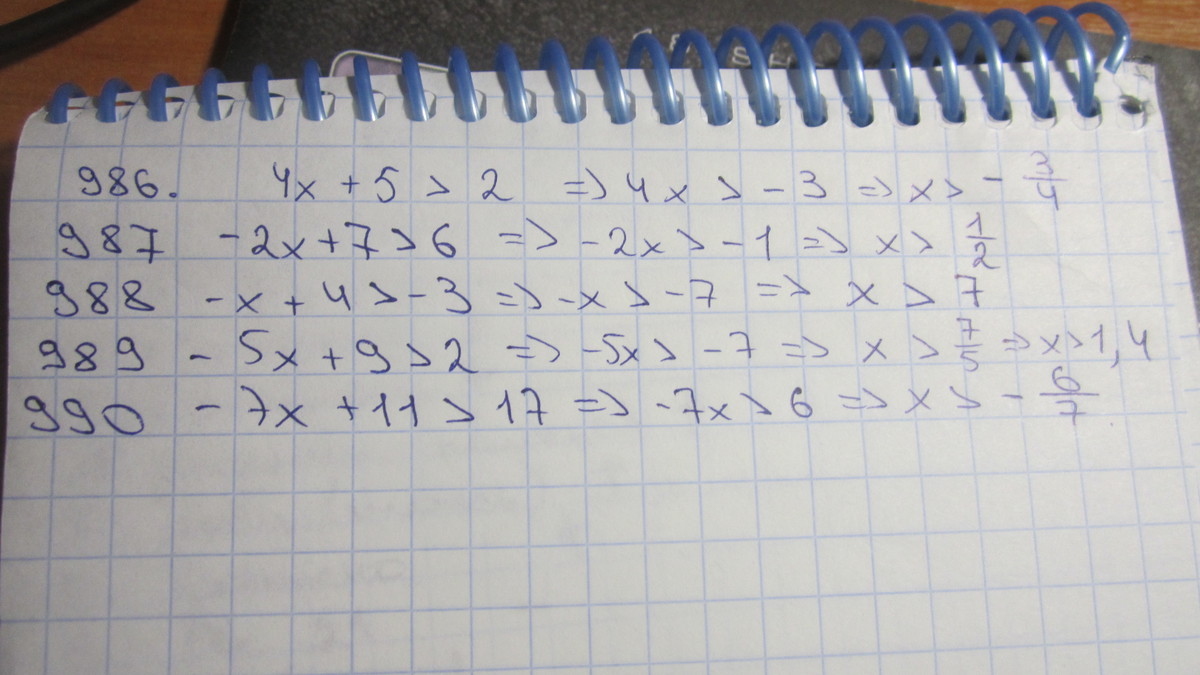 986. 4x + 5 > 2 => 4x > - 3 => x > - 3/4
987 - 2x + 7 > 6 => - 2x > - 1 => x > 1/2
988 - x + 4 > - 3 => - x > - 7 => x > 7
989 - 5x + 9 > 2 => - 5x > - 7 => x > 7/5 => x > 1,4
990 - 7x + 11 > 17 => - 7x > 6 => x > - 6/7